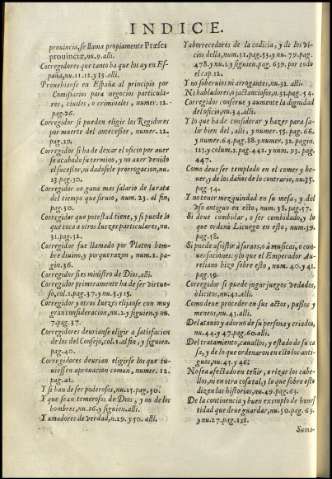 INDICE.
prouincia, se llama propiamente Præses
prouinciæ, nu. 9. alli.
Corregidores que tanto ha que los ay en Es-
paña, nu. 11. 12. y 13. alli.
Proueyanse en España al principio por
Comissarios para negocios particula-
res, ciuiles, o criminales, numer. 12.
pag. 26.
Corregidor si pueden eligir los Regidores
por muerte del antecessor, numer. 22.
pag. 28.
Corregidor si ha de dexar el oficio por auer
se acabado su termino, y no auer venido
el sucessor, ni dadosele prorrogacion, nu.
23. pag. 30.
Corregidor no gana mas salario de la rata
del tiempo que siruio, num. 23. al fin,
pag. 30.
Corregidor que potestad tiene, y si puede lo
que toca a otros Iuezes particulares, nu.
31. pag. 32.
Corregidor fue llamado por Platon hom-
bre diuino, y porque razon, num. 1. pa-
gin. 36.
Corregidor si es ministro de Dios, alli.
Corregidor primeramente ha de ser virtuo-
so, col. 2. pag. 37. y nu. 5. y 15.
Corregidor y otros Iuezes elijanse con muy
gran consideracion, nu. 2. y siguien. y nu.
7. pag. 37.
Corregidores deurianse eligir a satisfacion
de los del Consejo, col. 2. al fin, y siguien.
pag. 40.
Corregidores deurian eligirse los que tu-
uiessen aprouacion comun, numer. 12.
pag. 42.
Y si han de ser poderosos, nu. 15. pag. 50.
Y que sean temerosos de Dios, y no de los
hombres, nu. 26. y siguien. alli.
Y amadores de verdad, n. 29. y 50. alli.
Y aborrecedores de la codicia, y de los vi-
cios della, num. 31. pag. 53. y nu. 79. pag.
478. y nu. 1. y siguien. pag. 639. por todo
el cap. 12.
Y no soberuios ni arrogantes, nu. 32. alli.
Ni habladores, o jactanciosos, n. 33. pag. 54.
Corregidor conserue y aumente la dignidad
del oficio, nu. 34. alli.
Y lo que ha de considerar y hazer para sa-
lir bien del, alli, y numer. 55. pag. 66.
y numer. 64. pag. 88. y numer. 32. pagin.
113. y colum. 2. pag. 442. y numero 23. pag.
447.
Como deue ser templado en el comer y be-
uer, y de los daños de lo contrario, nu. 35.
pag. 54.
Y no tener mezquindad en su mesa, y del
vso antiguo en esto, num. 38. pag. 57.
Si deue combidar, o ser combidado, y lo
que ordenò Licurgo en esto, num. 39.
pag. 58.
Si puede assistir a saraos, o a musicas, o con-
uersaciones: y lo que el Emperador Au-
reliano hizo sobre esto, num. 40. y 41.
pag. 59.
Corregidor si puede jugar juegos vedados,
o licitos, nu. 42. alli.
Como deue proceder en sus actos, passos y
meneos, nu. 43. alli.
Del atauio y adorno de su persona y criados,
nu. 44. y 47. pag. 60. alli.
Del tratamiento, cauallos, y estado de su ca
sa, y de lo que ordenaron en ello los anti-
guos, nu. 45. y 46.
No sea afectado en teñir, y rizar los cabe-
llos, ni en otra cosa tal, y lo que sobre esto
dizen las historias, nu. 49. pag. 63.
De la continencia y buen exemplo de hones-
tidad que deue guardar, nu. 50. pag. 63.
y nu. 27. pag. 131.
Suma-